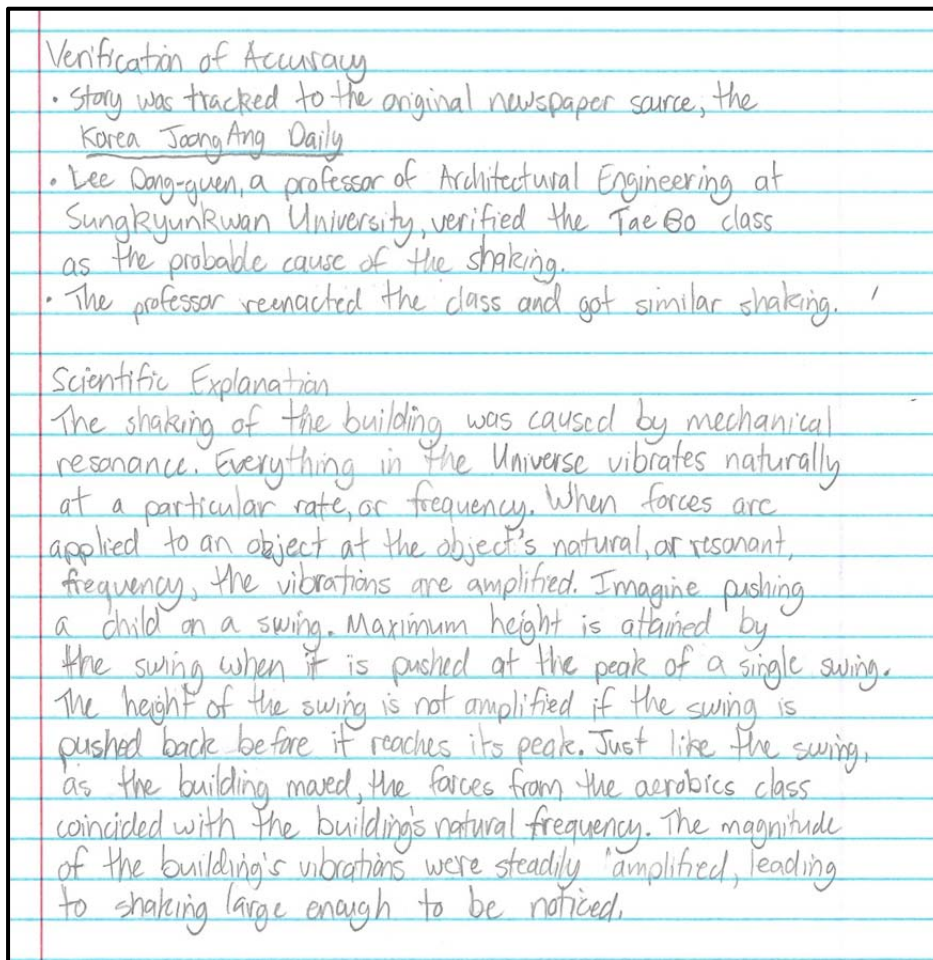 Verification of Accuracy
• Story was tracked to the original newspaper source, the
Korea JoongAng Daily
• Lee Dong-guen, a professor of Architectural Engineering at
Sungkyunkwan University, verified the Tae Bo class
as the probable cause of the shaking.
• The professor reenacted the class and got similar shaking.
Scientific Explanation
The shaking of the building was caused by mechanical
resonance. Everything in the Universe vibrates naturally
at a particular rate, or frequency. When forces are
applied to an object at the object's natural, or resonant,
frequency, the vibrations are amplified. Imagine pushing
a child on a swing. Maximum height is attained by
the swing when it is pushed at the peak of a single swing.
The height of the swing is not amplified if the swing is
pushed back before it reaches its peak. Just like the swing,
as the building moved, the forces from the aerobics class
coincided with the building's natural frequency. The magnitude
of the building's vibrations were steadily amplified, leading
to shaking large enough to be noticed.